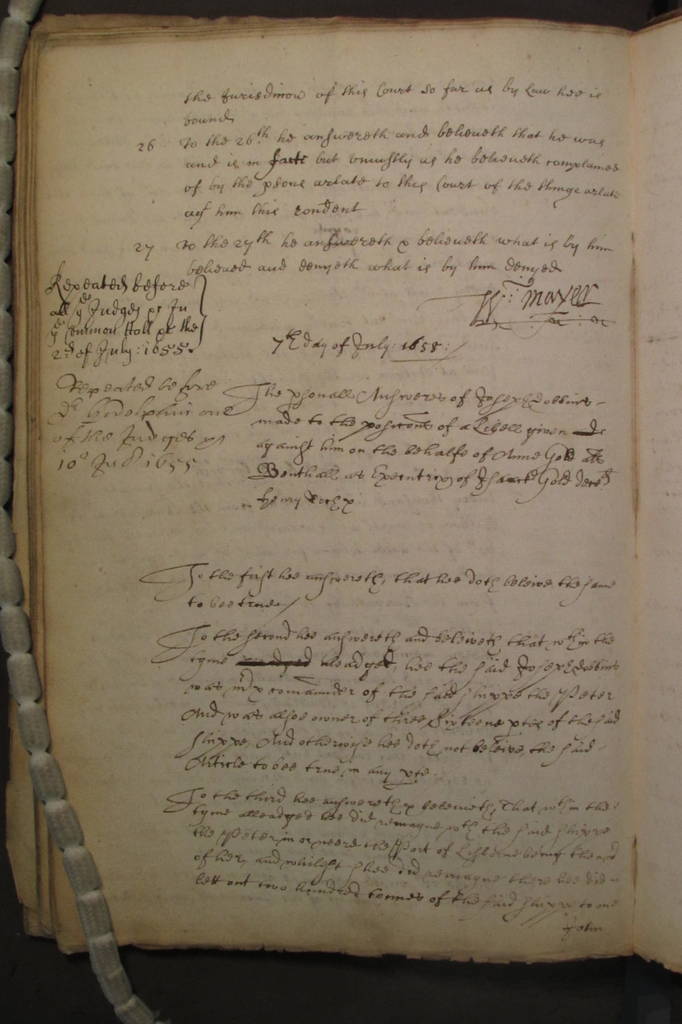 the Jurisdiction of this Court so far as by Law hee is
bound
26 To the 26th he answereth and beleiveth that he was
and is in facte but uniustly as he beleiveth complained
of by the to this Court of the things
him this rendent
27 To the 27th he answereth & beleiveth what is by him
beleived and denyeth what is by him denyed
Repeated before
all ye Judges in
ye Common Hall the
2d of July: 1655.
7th day of July: 1655:
Repeated before
Dr Godolphin one
of the Judges
10o 1655
The psonall Answeres of Joseph
made to the positions of a Libell given
against him on the behalfe of Anne Gold als
Bonthall as Executrix of Gold decd
To the first hee answereth, that hee doth beleive the same
to bee true /
To the second hee answereth and beleiveth that wthin the
tyme alleadged, hee the said Joseph
was mr & comander of the said shippe the Peter
And was alsoe owner of three sixteene ptes of the said
shippe, And otherwise hee doth not beleive the said
Article to bee true in any pte
To the third hee answereth & beleiveth, That wthin the
tyme alleadged hee did remayne wth the said shippe
the Peter in or neere the Port of
of her, and whilest shee did remayne there hee did
lett out two hundred tonnes of the said shippe to one
John